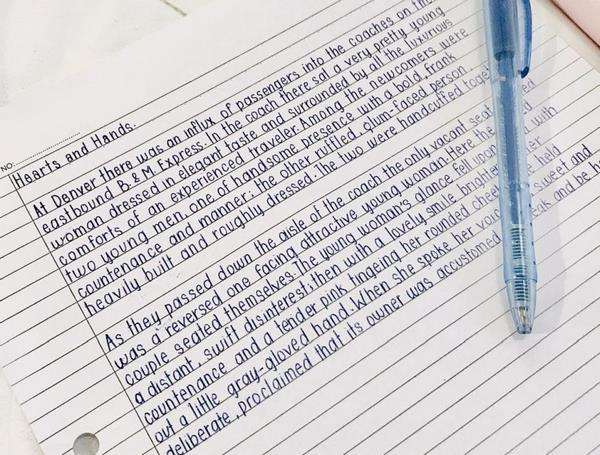 NO.
Hearts and Hands.
At Denver there was an influx of passengers into the coaches on the
eastbound B. & M Express. In the coach there sat a very pretty young
woman dressed in elegant taste and surrounded by all the luxurious
comforts of an experienced traveler. Among the newcomers were
two young men, one of handsome presence with a bold, frank
countenance and manner; the other ruffled, glum-faced person
heavily built and roughly dressed. The two were handcuffed
As they passed down the aisle of the coach the only vacant seat
was a reversed one facing attractive young woman. Here the
couple seated themselves. The young woman's glance fell with
a distant, swift disinterest; then with a lovely smile
countenance and a tender pink tingeing her rounded held
out a little gray-gloved hand. When she spoke her sweet and
deliberate, proclaimed that its owner was accustomed and be